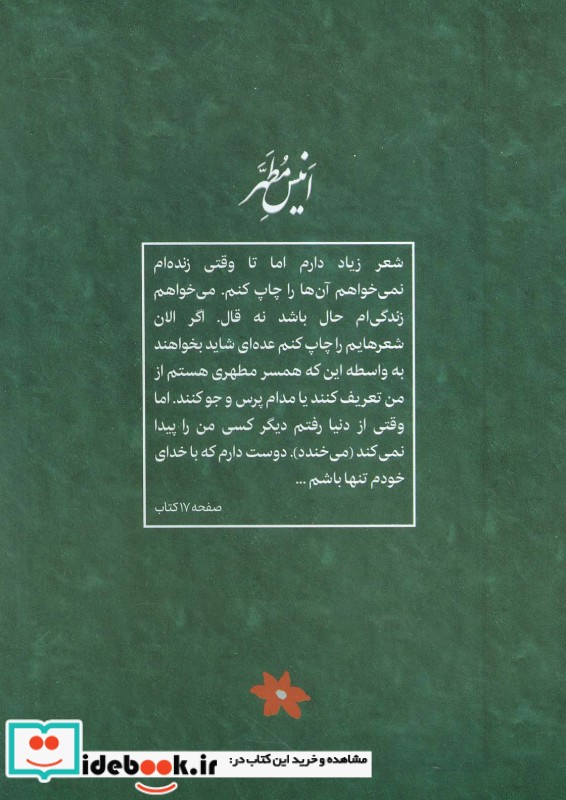 اَنیس مُطَهَّر
شعر زیاد دارم اما تا وقتی زنده‌ام
نمی‌خواهم آن‌ها را چاپ کنم. می‌خواهم
زندگی‌ام حال باشد نه قال. اگر الان
شعرهایم را چاپ کنم عده‌ای شاید بخواهند
به واسطه این که همسر مطهری هستم از
من تعریف کنند یا مدام پرس و جو کنند. اما
وقتی از دنیا رفتم دیگر کسی من را پیدا
نمی‌کند (می‌خندد). دوست دارم که با خدای
خودم تنها باشم ...
صفحه ۱۷ کتاب
مشاهده و خرید این کتاب در:
idebook.ir